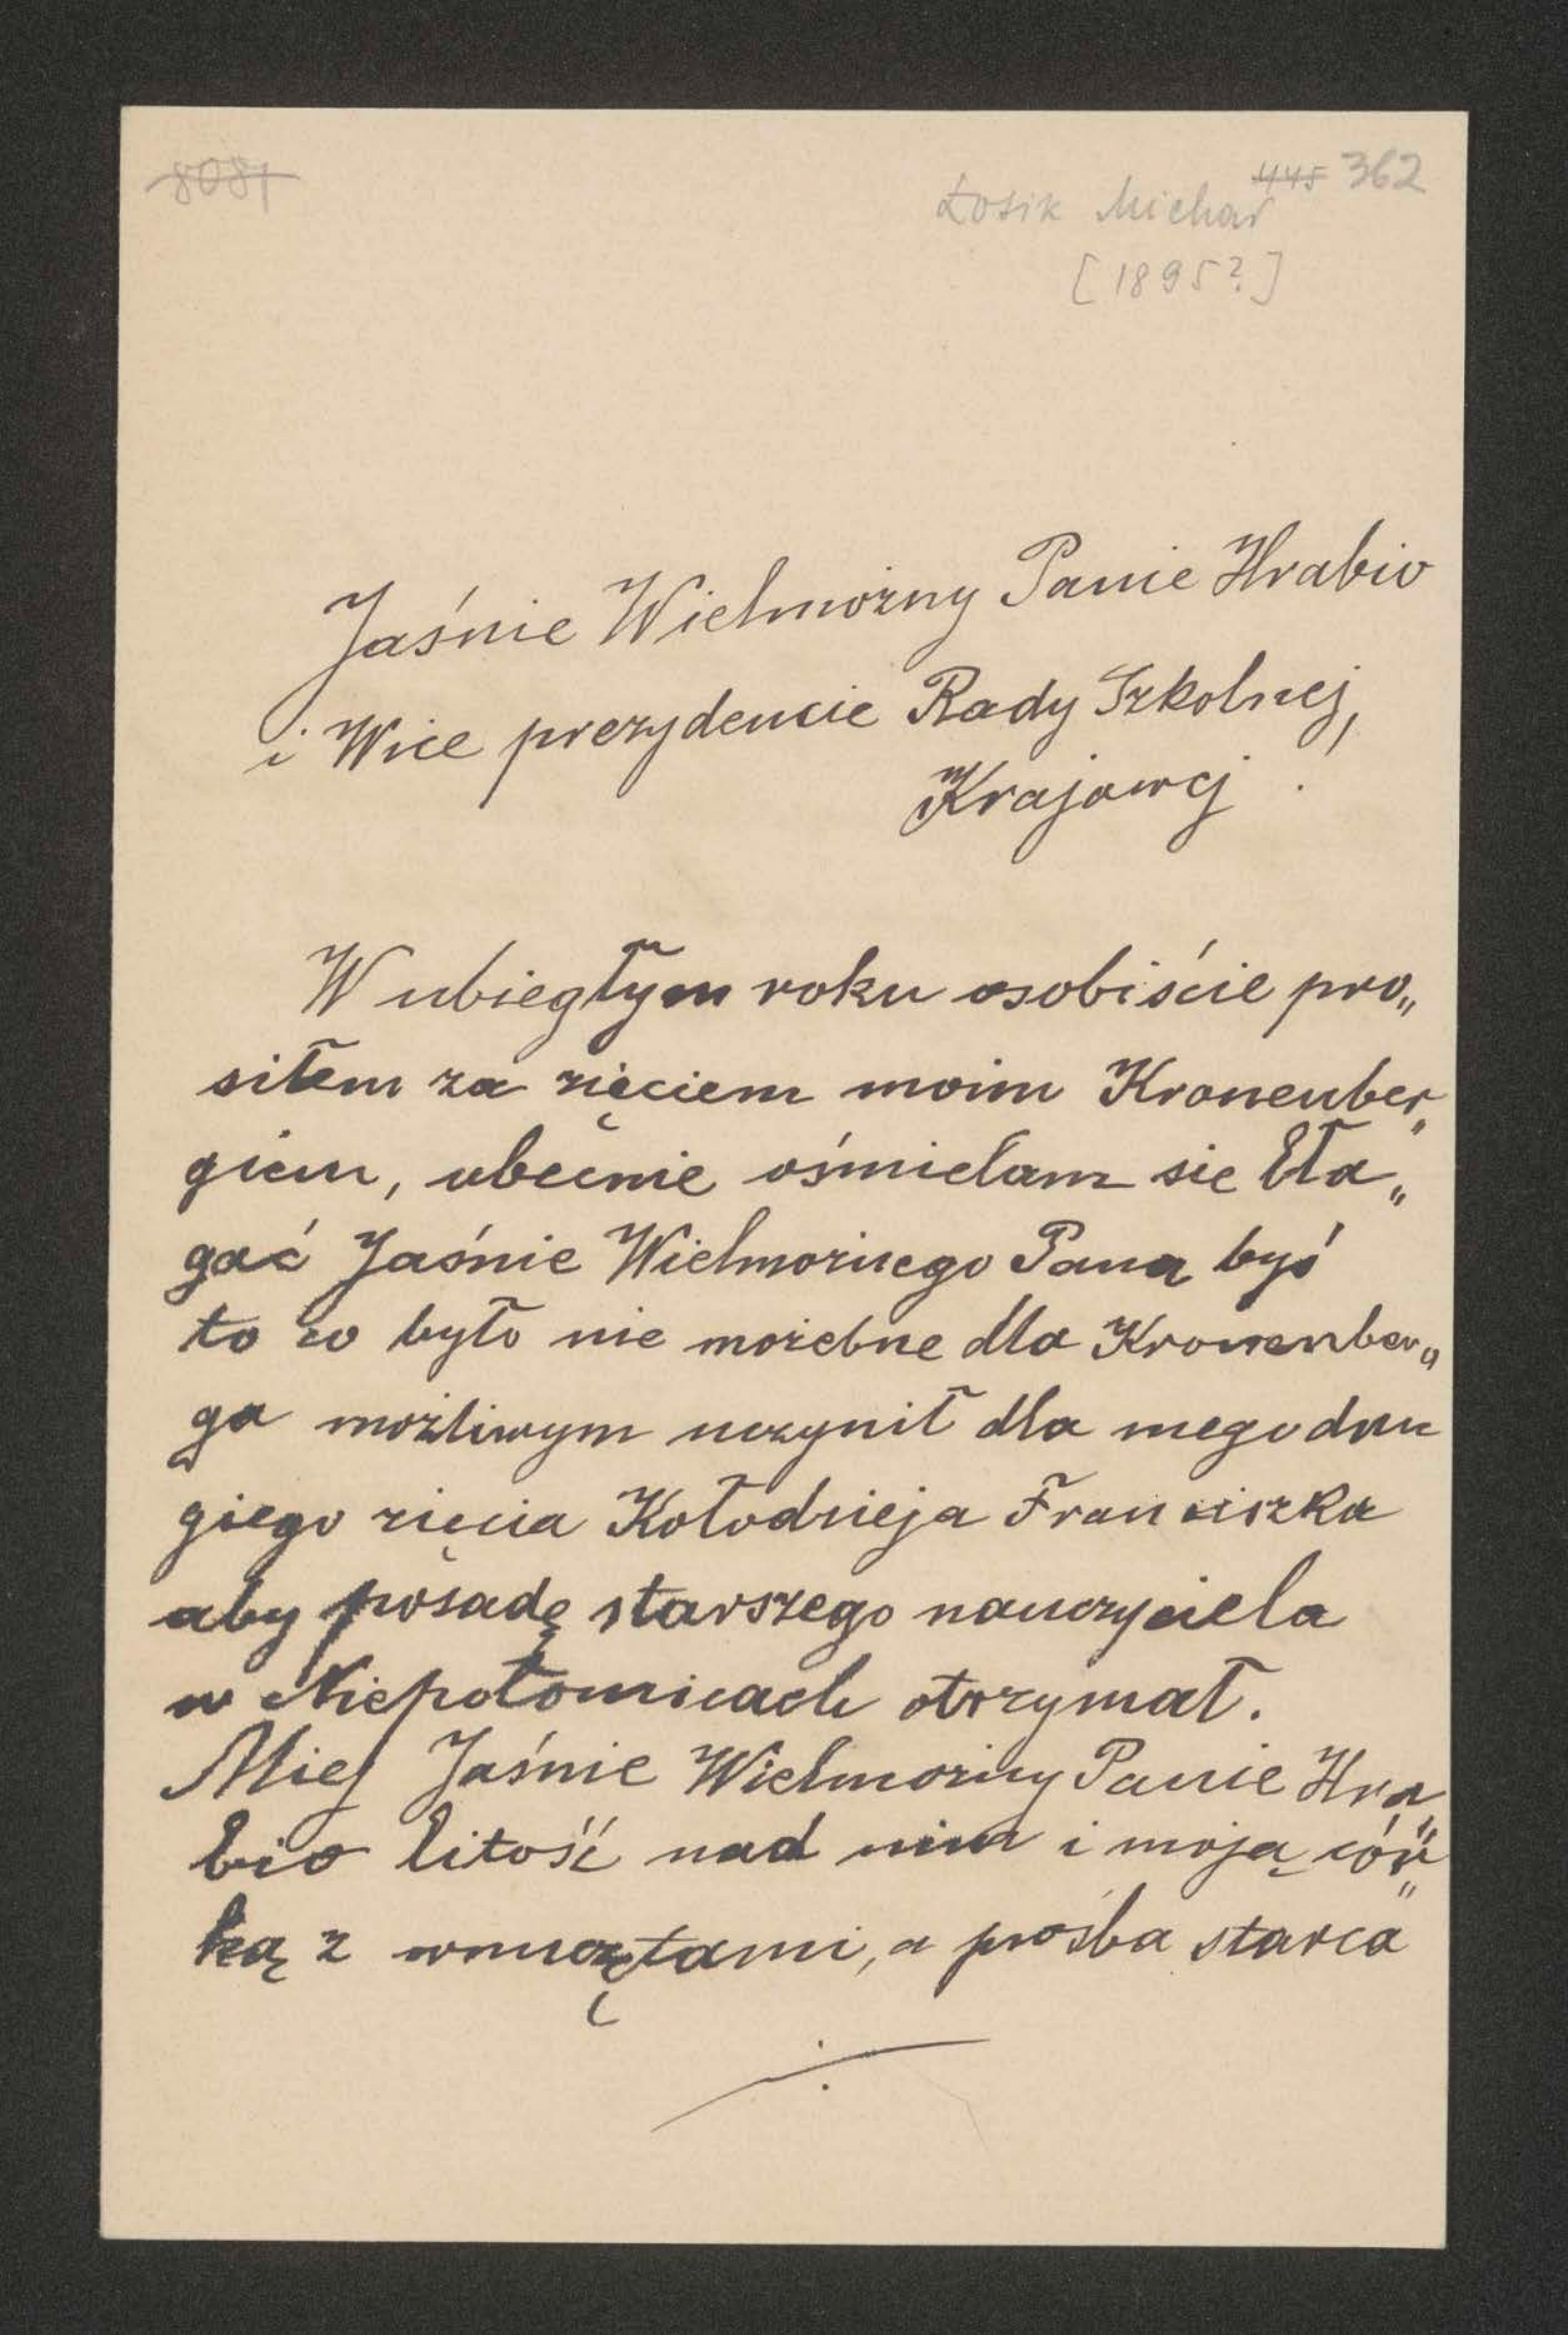 8081
445 362
Łosik Michał
[1895?]
Jaśnie Wielmożny Panie Hrabio
i Wice prezydencie Rady Szkolnej,
Krajowej !
W ubiegłym roku osobiście pro„
siłem za zięciem moim Kronenber„
giem, obecnie ośmielam się bła„
gać Jaśnie Wielmożnego Pana byś
to co było nie możebne dla Kronenber„
ga możliwym uczynił dla mego dru
giego zięcia Kołodzieja Franciszka
aby posadę starszego nauczyciela
w Niepołomicach otrzymał.
Miej Jaśnie Wielmożny Panie Hra„
bio litość nad nim i moją cór„
ką z wnuczętami, a prośba starca